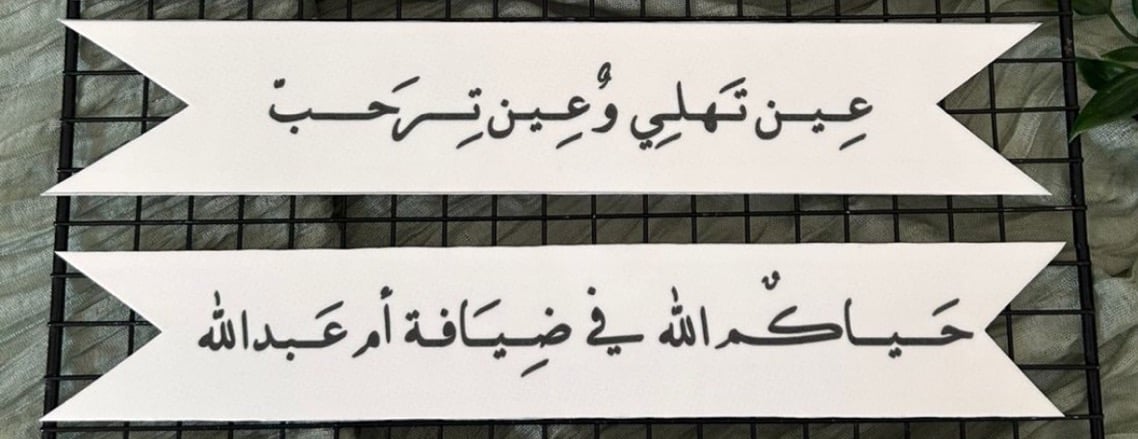 عِين تَهلِي وُعِين تِرَحبّ
حَياكمُ الله في ضِيَافة أم عَبدالله